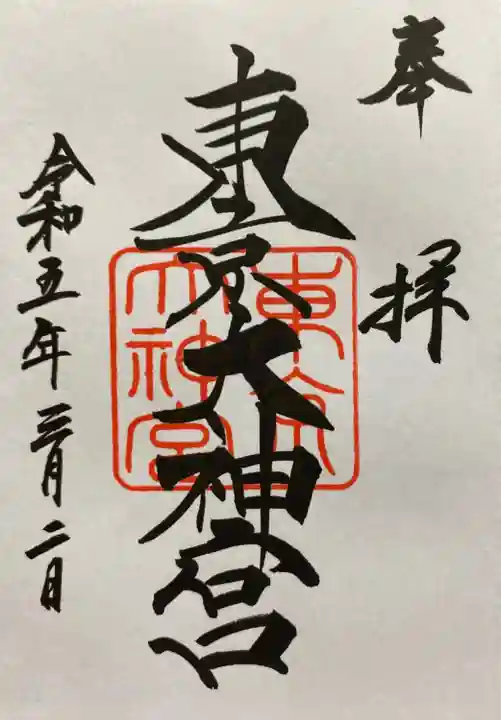 奉拝
東京大神宮
令和五年三月二日
東京大神宮